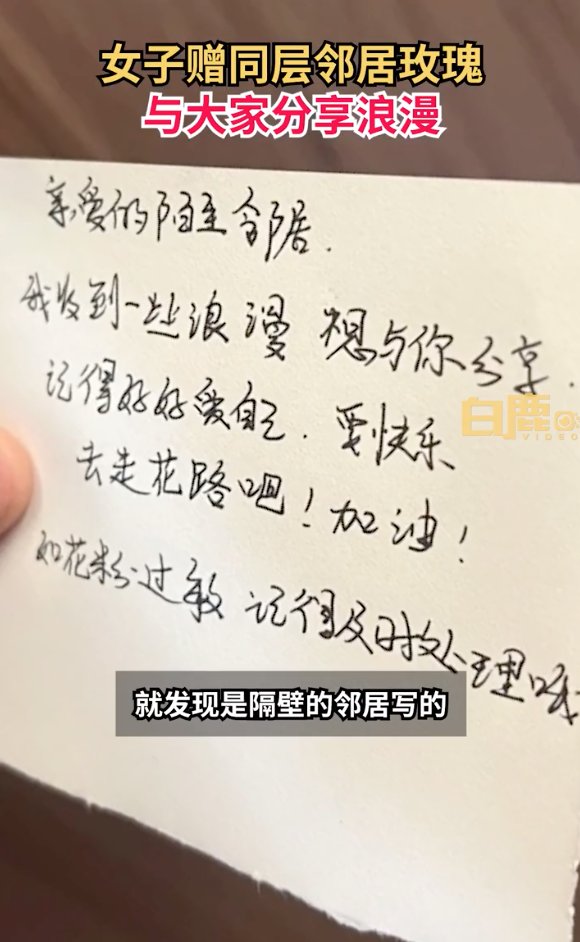 女子赠同层邻居玫瑰
与大家分享浪漫
亲爱的陌生邻居.
我收到一些浪漫 想与你分享.
白鹿
VIDEO
记得好好爱自己. 要快乐
去走花路吧！加油！
如花粉过敏 记得及时处理哦
就发现是隔壁的邻居写的